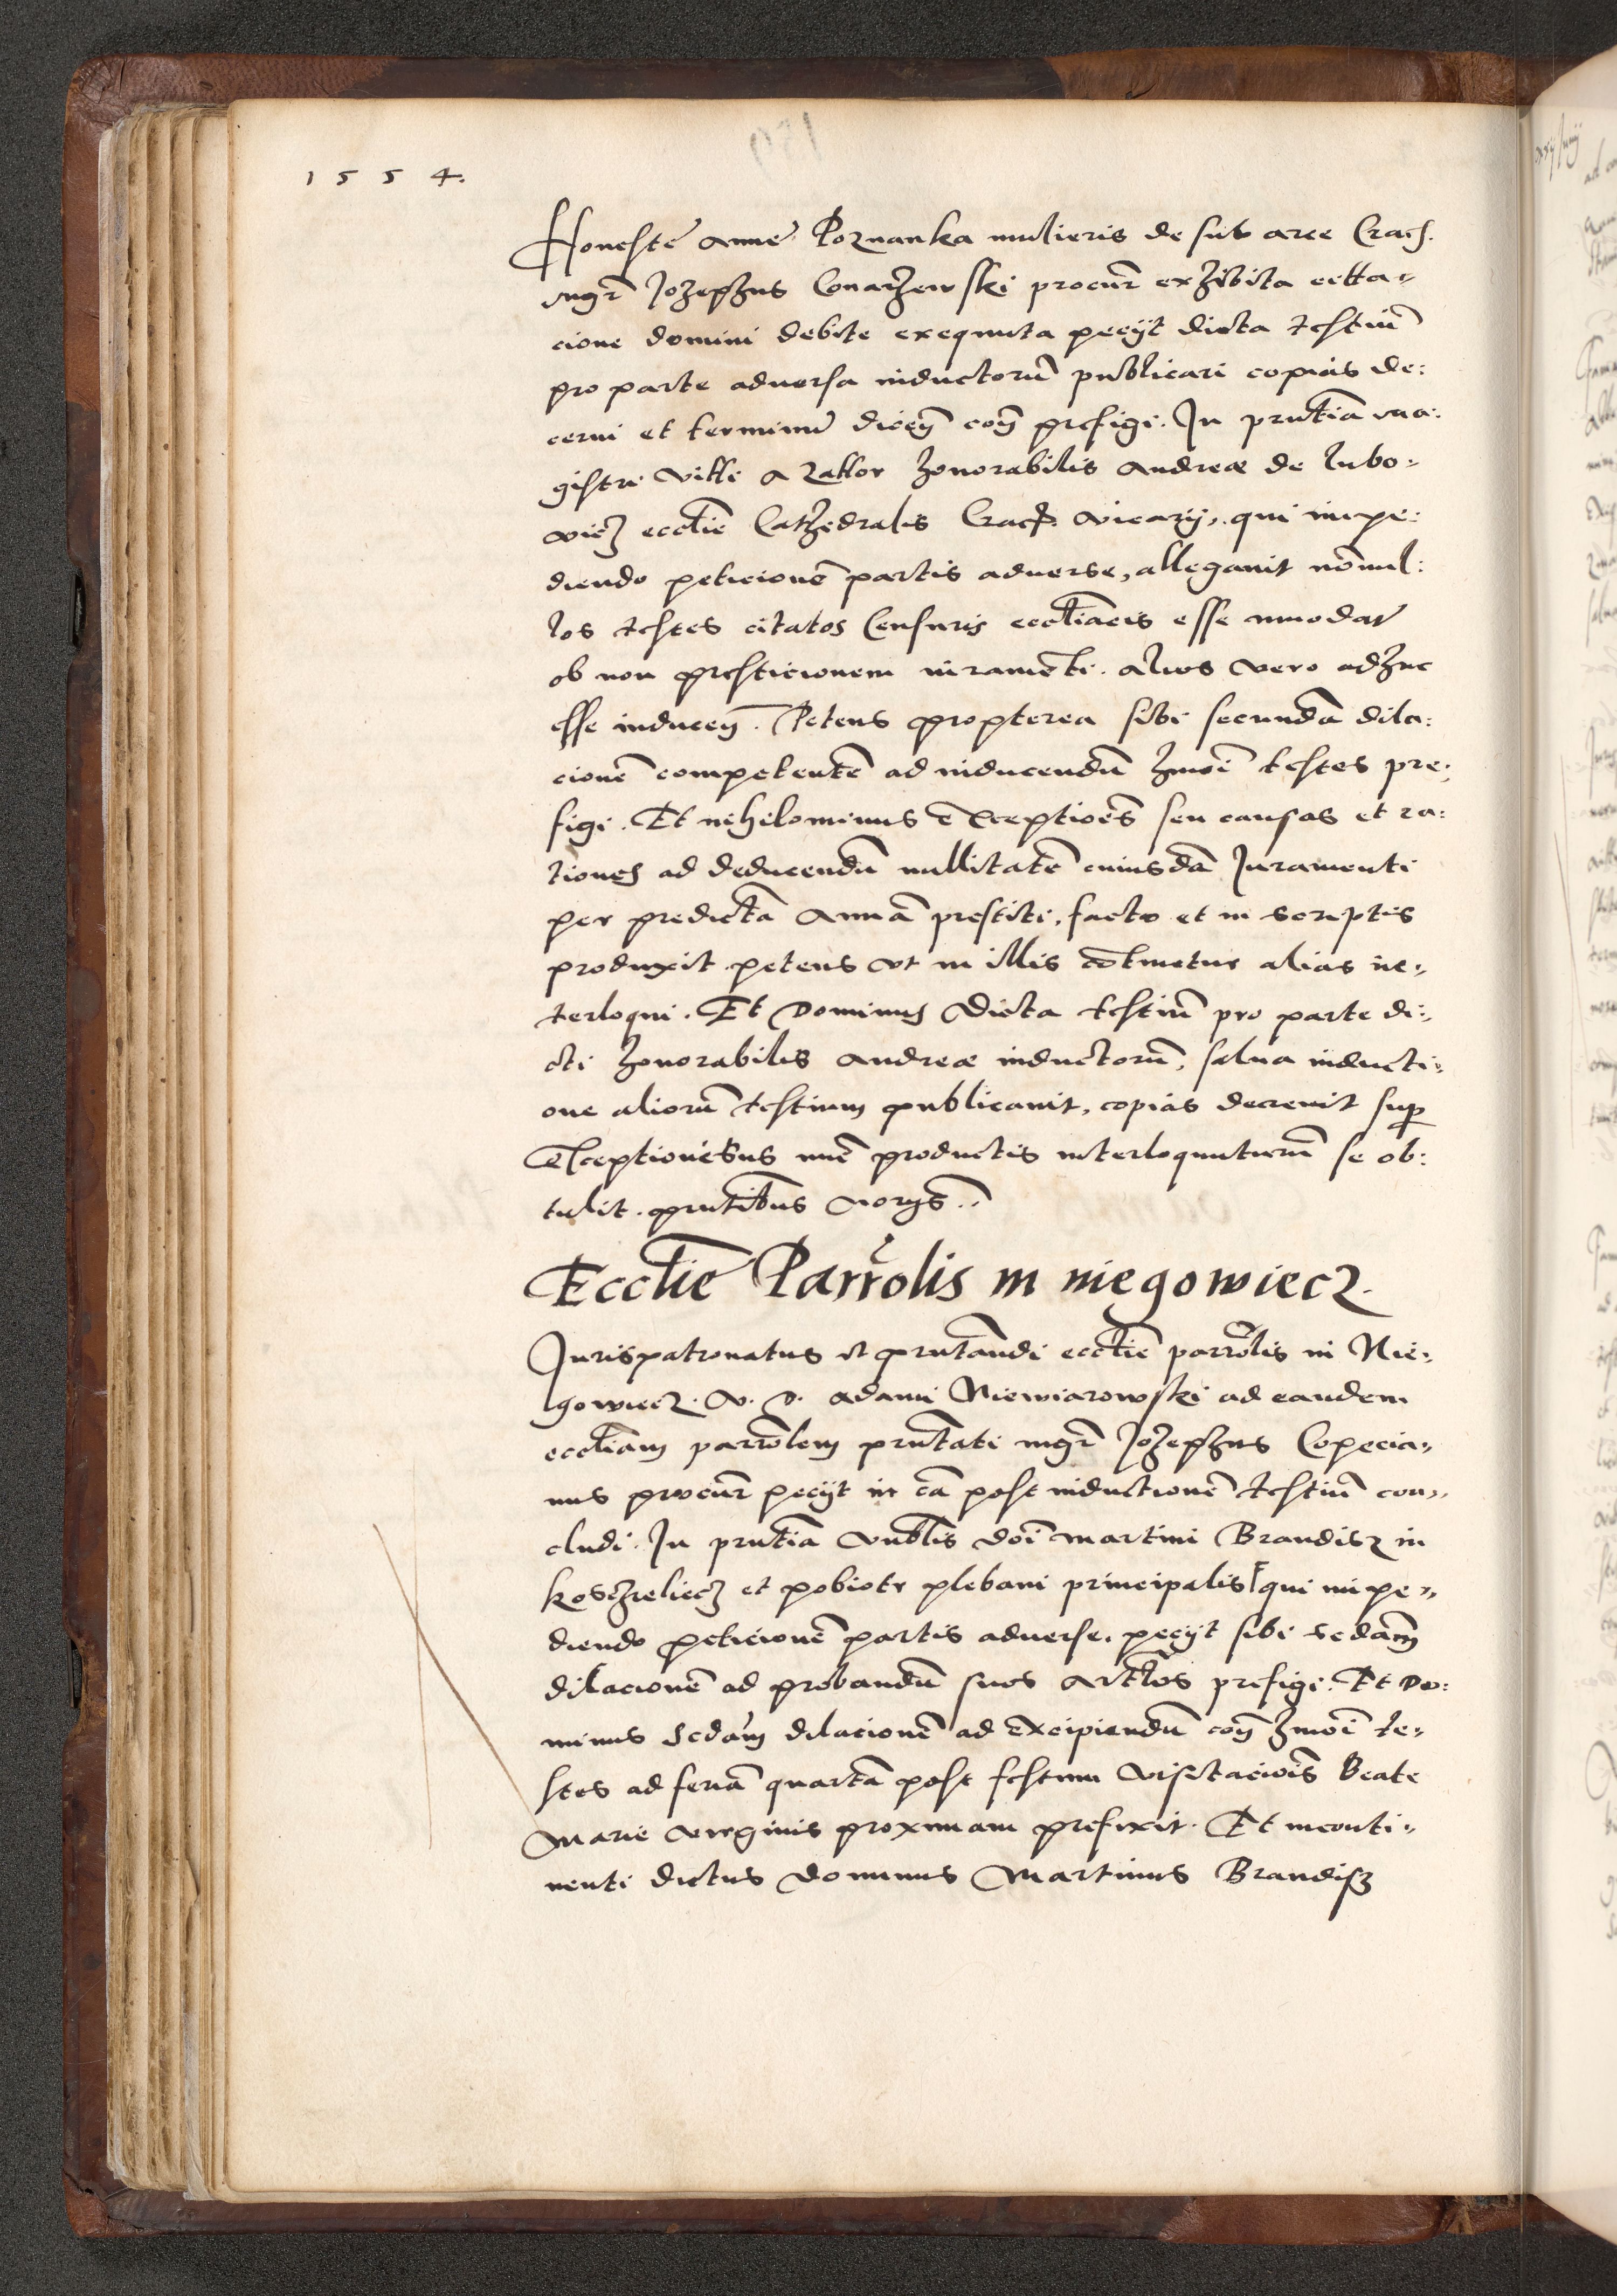 1554.
Honeste Anne Poznanka mulieris de sub arce Crac.
mgr̃ Jozephus Conarzewski procur̃ exhibita citta-
cione domini debite exequuta peciit dicta testiũ
pro parte adversa inductorũ publicari copias de:
cerni et terminũ dicen̄ con̄ prefigi. In pñtia ma:
gistri Viti a Zakli honorabilis Andreæ de Lubo-
vicz eccl̃ie Cathedralis Crac. vicarij, qui impe:
diendo peticionẽ partis adverse, allegavit nõnul:
los testes citatos Censuris eccl̃iacis esse innodat̃
ob non presticionem iuramẽti. alios vero adhuc
esse inducen̄. Petens propterea sibi secundã dila:
cionẽ competentẽ ad inducendũ hmõi testes pre:
figi. Et nihilominus exceptioẽs seu causas et ra:
tiones ad deducendũ nullitatẽ cuiusdã Juramenti
per predictã Annã prestiti, facto et in scriptis
produxit petens ut in illis cõtinetur alias in-
terloqui. Et Dominus Dicta testiũ pro parte di:
cti honorabilis Andreæ inductorũ, salva inducti:
one aliorũ testium publicavit, copias decrevit sup
exceptionibus nunc productis interloquuturũ se ob:
tulit. pñtibus Norys.
Eccl̃ie Parr̃olis in niegowiecz.
Jurispatronatus et pñtandi eccl̃ie parr̃olis in Nie-
gowiecz. V. D. Adami Niewiarowski ad eandem
eccl̃iam parrõlem pñtati mgr̃ Jozephus Copecia-
nus procur̃ peciit in cã post inductionẽ testiũ con-
cludi. In pñtia Vnblis dõi Martini Brandisz in
koschieliecz et pobiotr plebani principalis qui impe-
diendo peticionẽ partis adverse, peciit sibi 2dam̃
dilacionẽ ad probandũ suos artl̃os prefigi. Et Do:
minus 2dam̃ dilacionẽ ad excipiendũ con̄ hmõi te-
stes ad feriã quartã post festum visitaciõis Beate
Marie virginis proximam prefixit. Et inconti-
nenti dictus dominus Martinus Brandisz